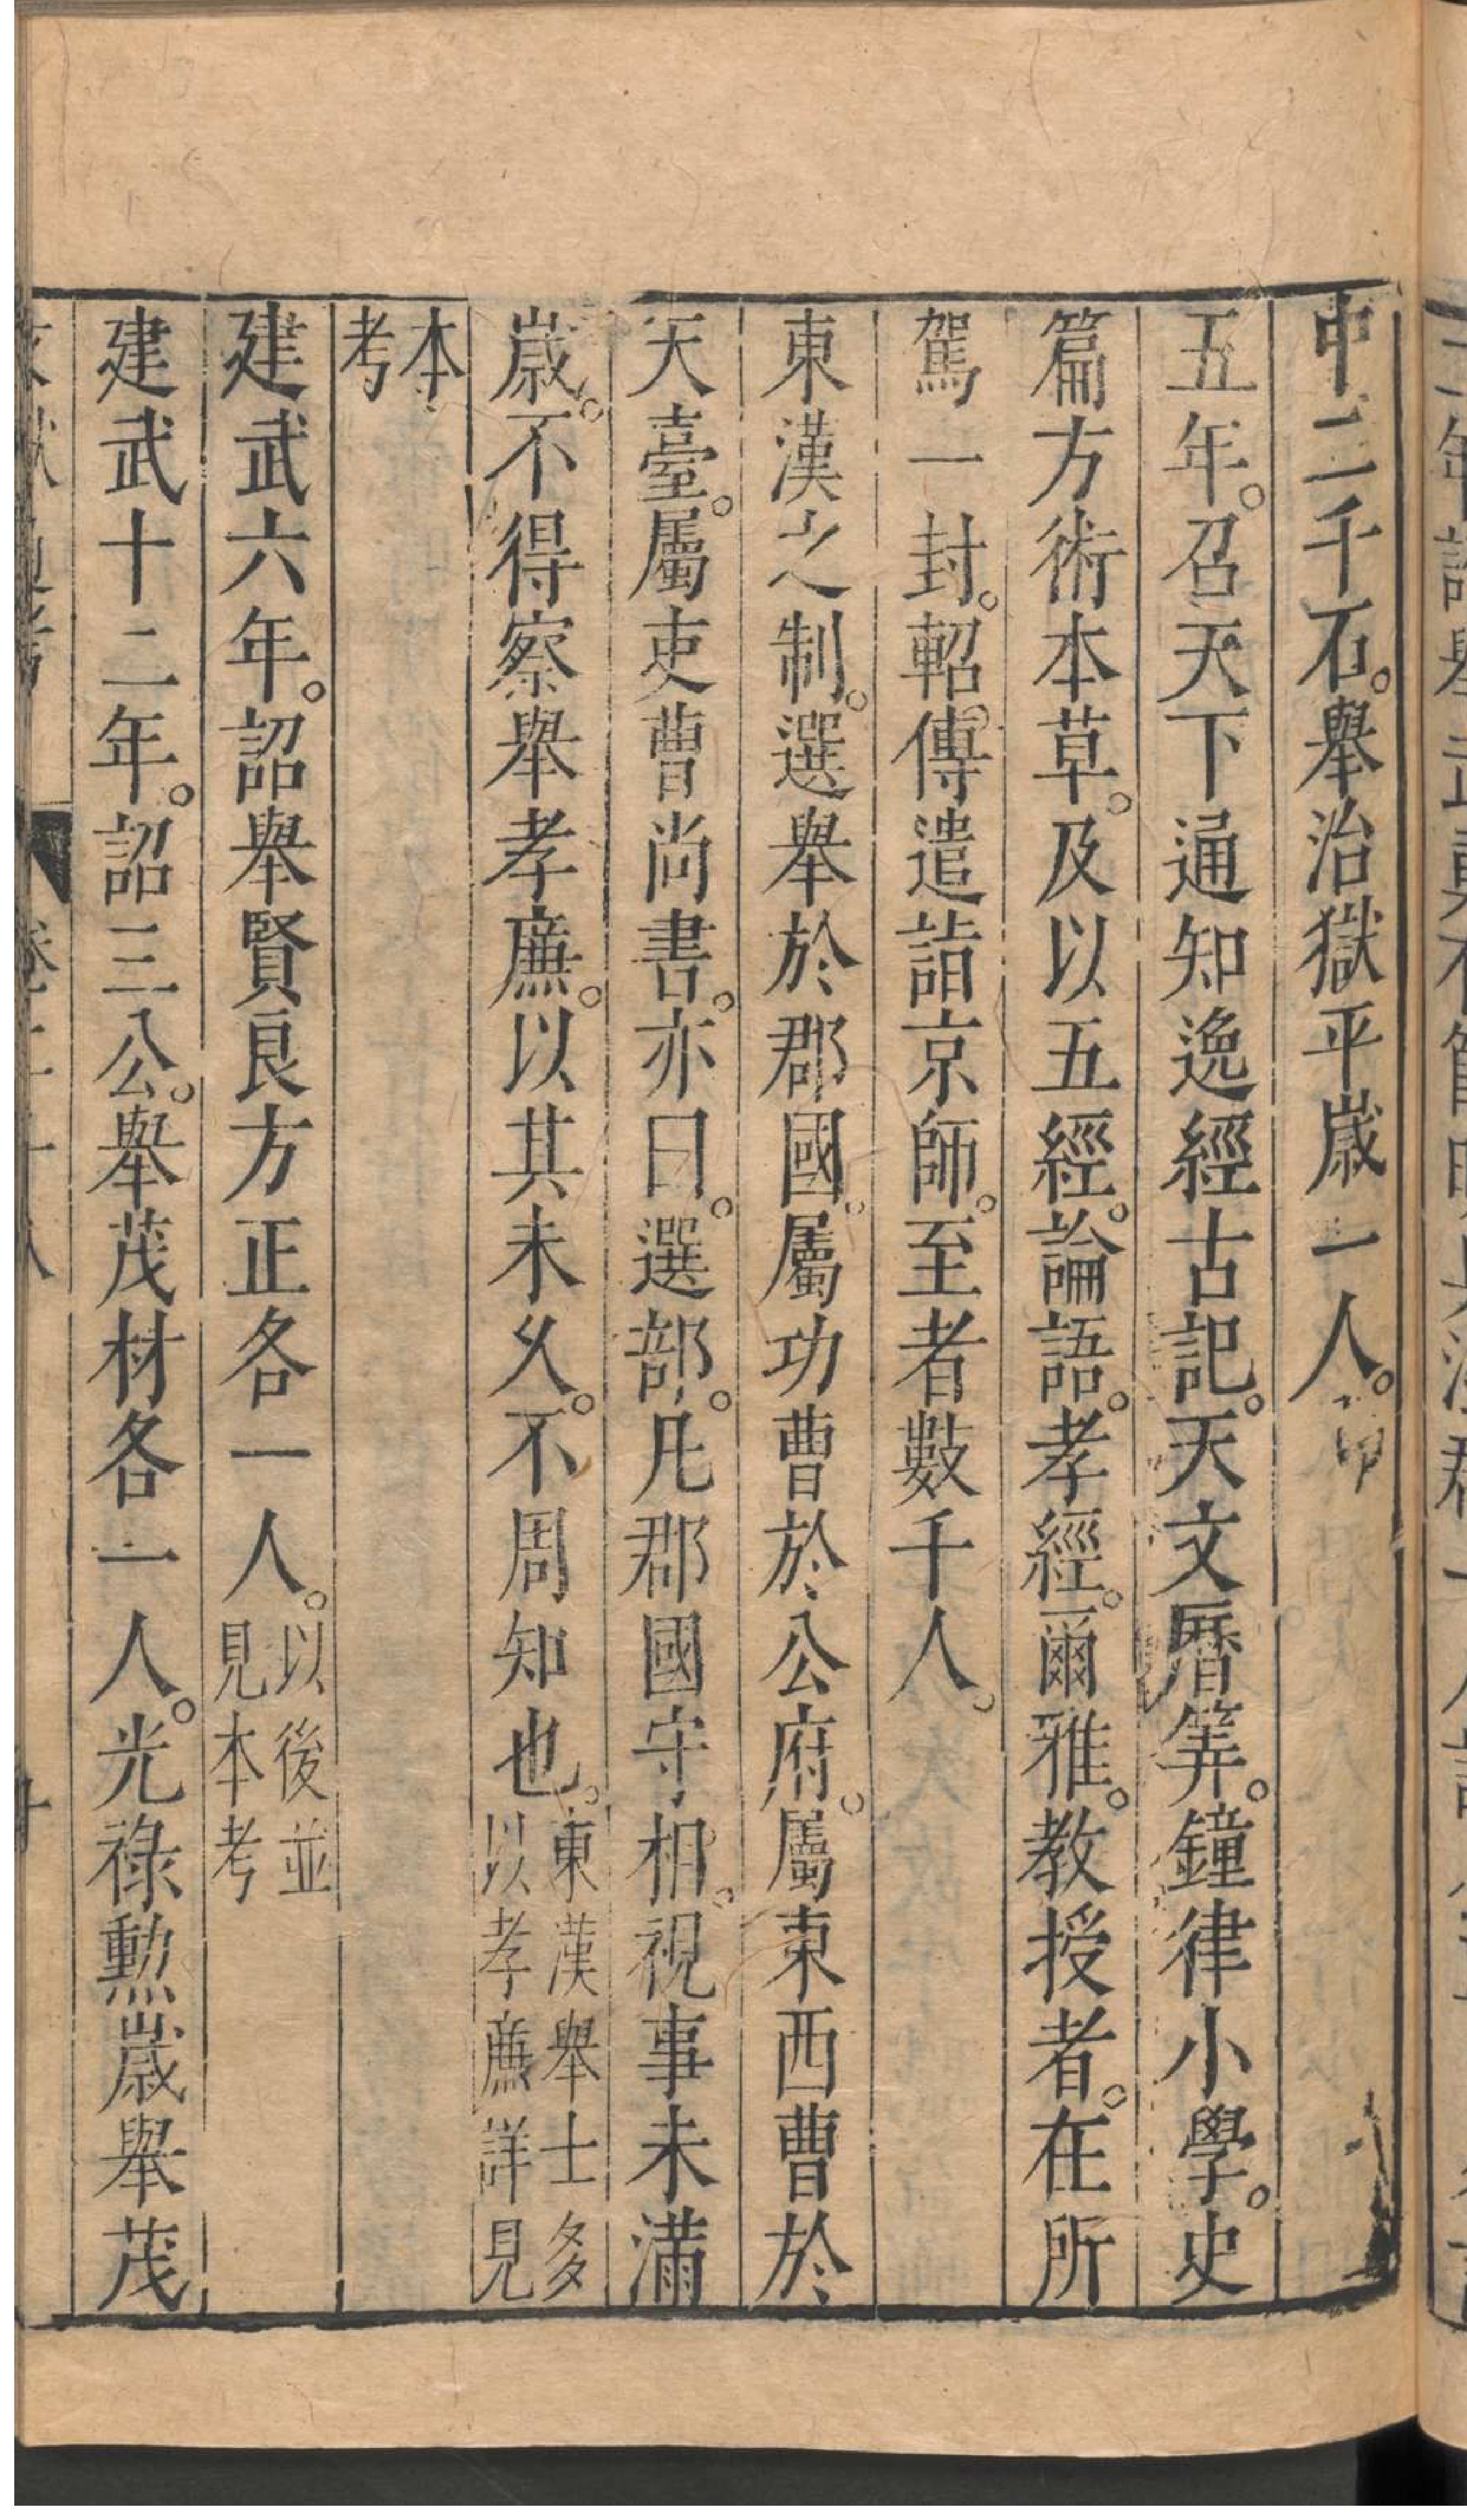 中二千石。舉治獄平歲一人。
五年。召天下通知逸經古記。天文曆筭。鐘律小學。史
篇方術本草。及以五經。論語。孝經。爾雅。教授者。在所
駕一封。軺傳遣詣京師。至者數千人。
東漢之制。選舉於郡國。屬功曹於公府。屬東西曹於
天臺。屬吏曹尚書。亦曰。選部。凡郡國守相。視事未滿
歲。不得察舉孝廉。以其未久。不周知也。東漢舉士多以孝廉詳見
本考
建武六年。詔舉賢良方正各一人。以後並見本考
建武十二年。詔三公。舉茂材各一人。光祿勲歲舉茂